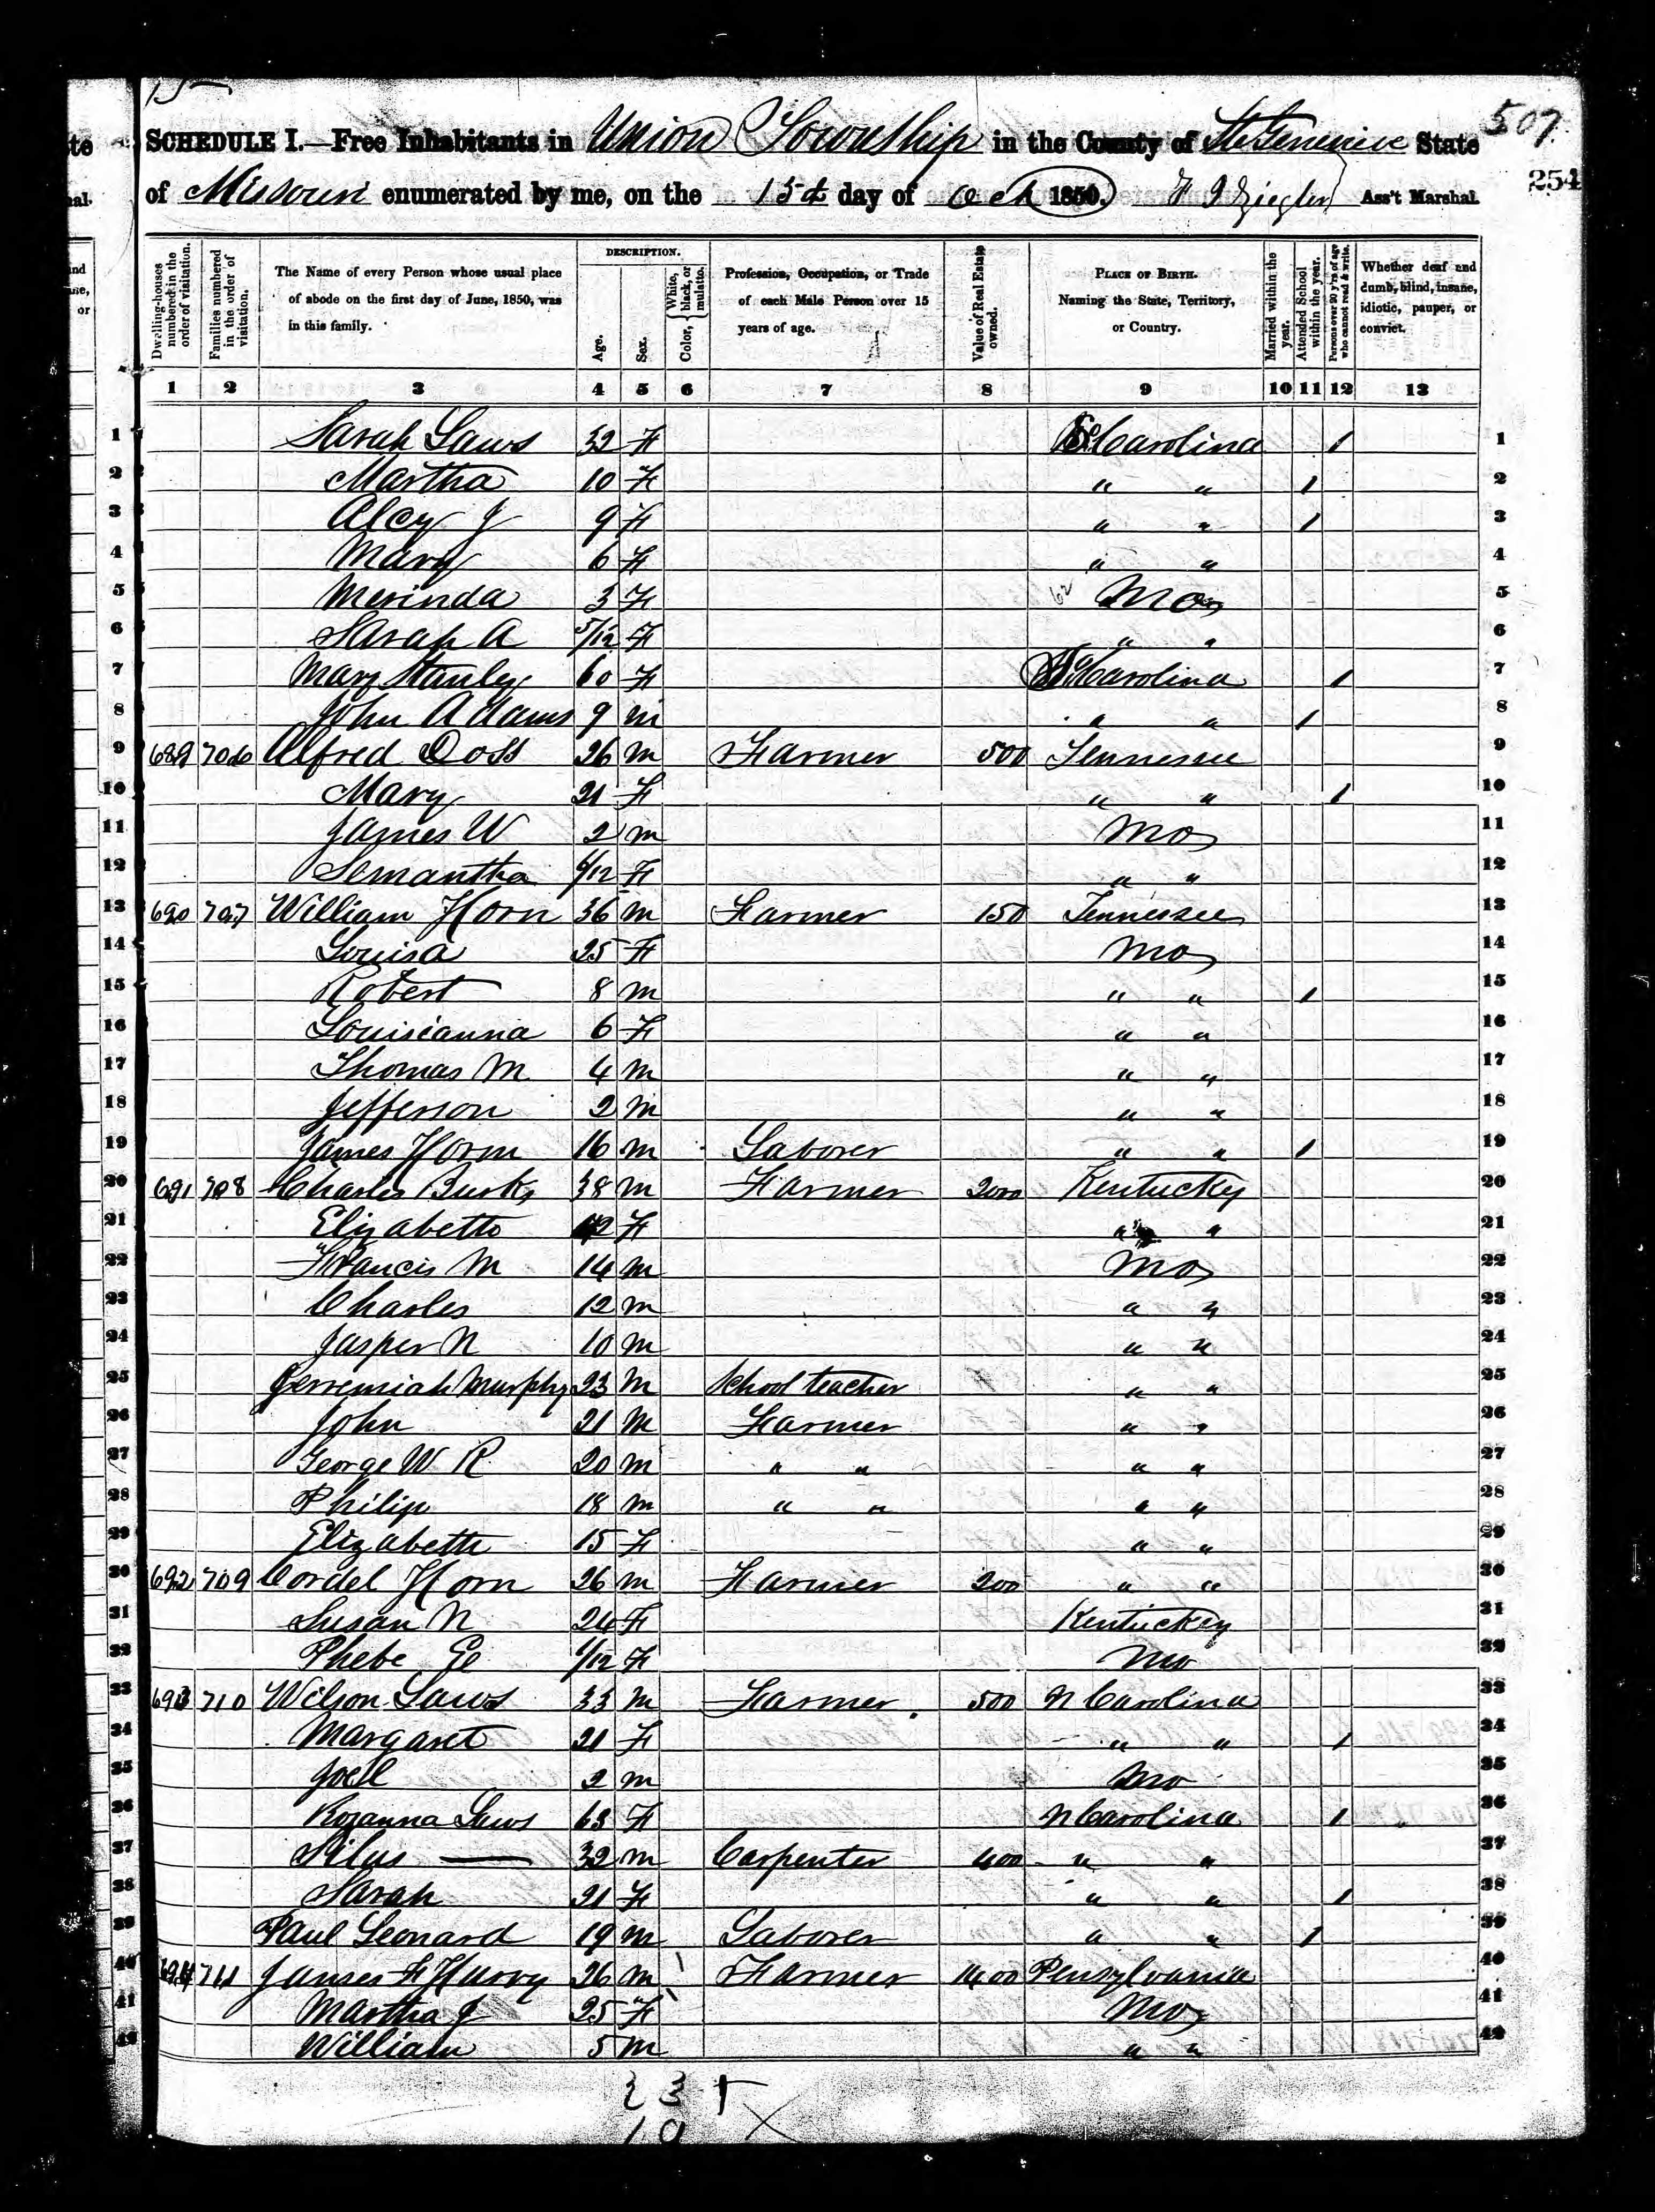 15
te
SCHEDULE I.—Free Inhabitants in Union Township in the County of Ste Genevieve State
507.
al.
of Missouri enumerated by me, on the 15th day of Oct 1850. Ziegler Ass't Marshal.
254
Dwelling-houses numbered in the order of visitation.
Families numbered in the order of visitation.
The Name of every Person whose usual place of abode on the first day of June, 1850, was in this family.
DESCRIPTION.
Age.
Sex.
Color, { White, black, or mulatto.
Profession, Occupation, or Trade of each Male Person over 15 years of age.
Value of Real Estate owned.
PLACE OF BIRTH. Naming the State, Territory, or Country.
Married within the year.
Attended School within the year.
Persons over 20 y'rs of age who cannot read & write.
Whether deaf and dumb, blind, insane, idiotic, pauper, or convict.
1 2 3 4 5 6 7 8 9 10 11 12 13
1 Sarah Laws 32 F Carolina / 1
2 Martha 10 F " " / 2
3 Alcy J 9 F " " / 3
4 Mary 6 F " " 4
5 Merinda 3 F 62 Mo 5
6 Sarah A 5/12 F " " 6
7 Mary Stanley 60 F Carolina / 7
8 John Adams 9 m " " / 8
9 689 706 Alfred Doss 26 m Farmer 500 Tennessee 9
10 Mary 21 F " " / 10
11 James W 2 m Mo 11
12 Semantha 6/12 F " " 12
13 690 707 William Horn 36 m Farmer 150 Tennessee 13
14 Louisa 25 F Mo 14
15 Robert 8 m " " / 15
16 Louisianna 6 F " " 16
17 Thomas M 4 m " " 17
18 Jefferson 2 m " " 18
19 James Horn 16 m Laborer " " / 19
20 691 708 Charles Burks 38 m Farmer 2000 Kentucky 20
21 Elizabeth 42 F " " 21
22 Francis M 14 m Mo 22
23 Charles 12 m " " 23
24 Jasper N 10 m " " 24
25 Jerremiah Murphy 23 m School teacher " " 25
26 John 21 m Farmer " " 26
27 George W R 20 m " " " " 27
28 Philip 18 m " " " " 28
29 Elizabeth 15 F " " 29
30 692 709 Cordel Horn 26 m Farmer 200 " " 30
31 Susan N 24 F Kentuckey 31
32 Phebe E 1/12 F Mo 32
33 693 710 Wilson Laws 33 m Farmer 500 N Carolina 33
34 Margaret 21 F " " / 34
35 Joel 2 m Mo 35
36 Rozanna Laws 63 F N Carolina / 36
37 Silas — 32 m Carpenter 400 " " 37
38 Sarah 21 F " " / 38
39 Paul Leonard 19 m Laborer " " / 39
40 694 711 James F Hurry 26 m Farmer 1400 Pensylvania 40
41 Martha J 25 F Mo 41
42 William 5 m " " 42
23
19